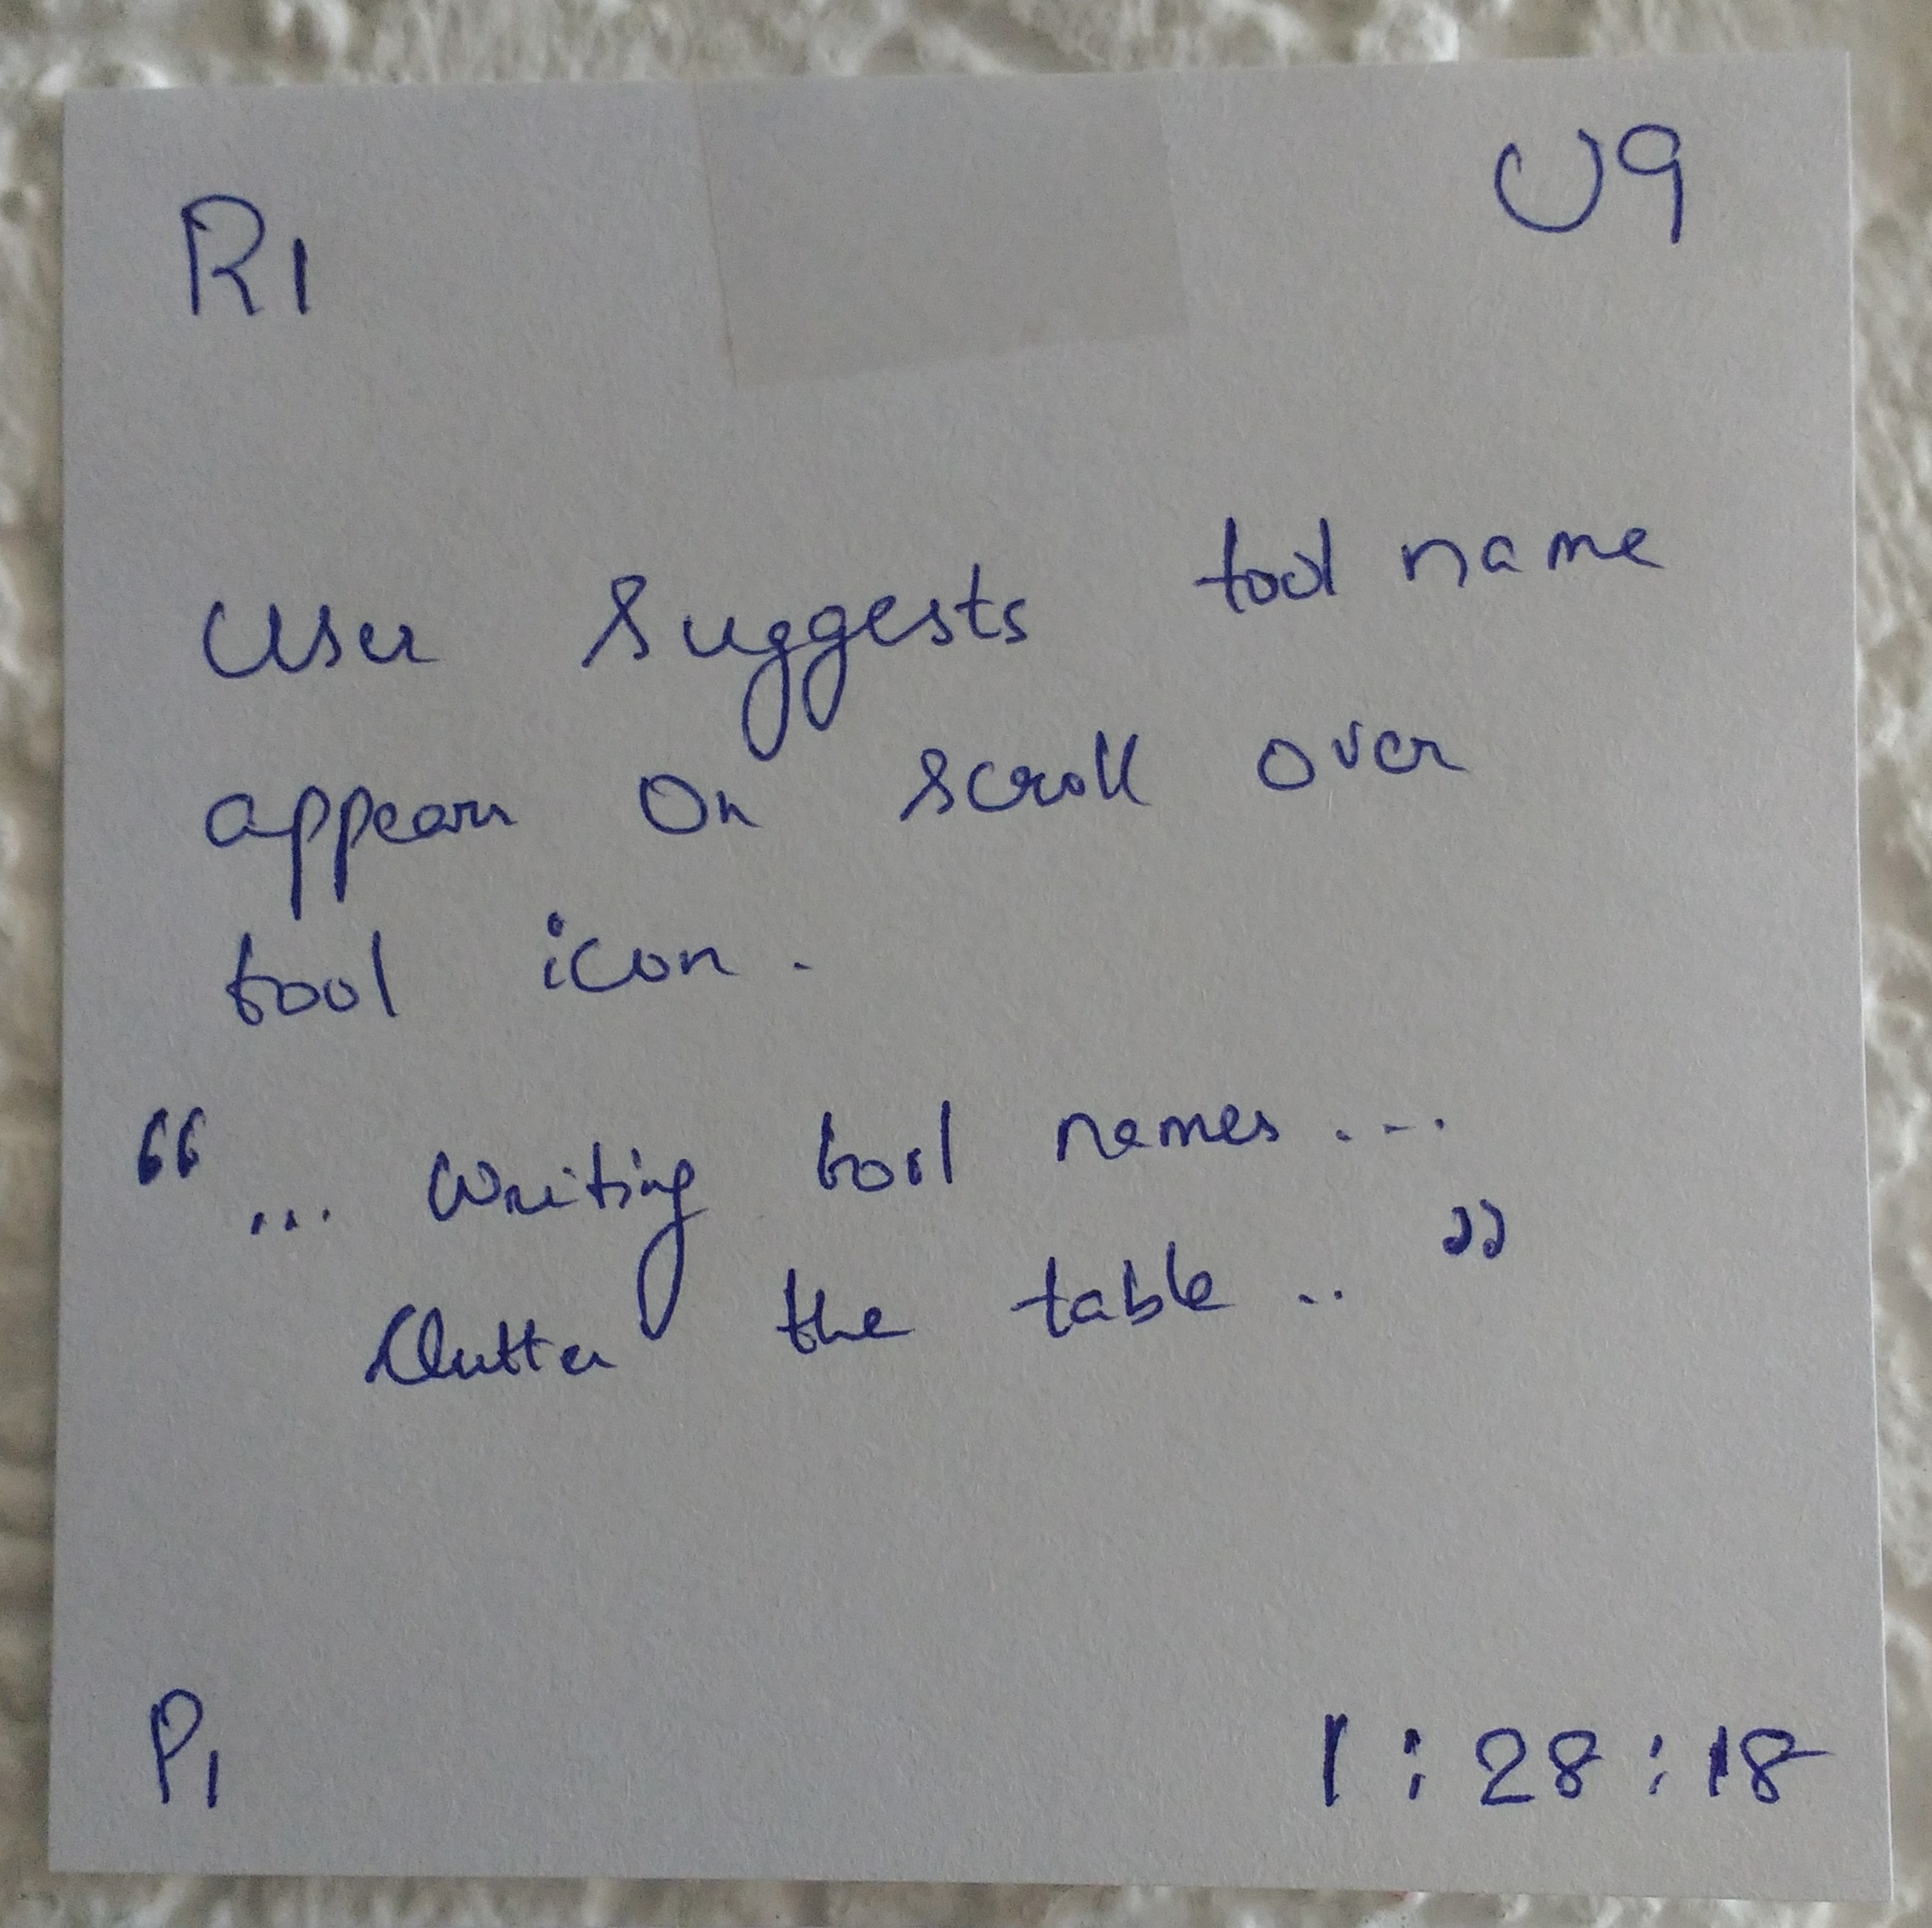 R1
U9
User suggests tool name
appear on scroll over
tool icon.
“... Writing tool names ...
Clutter the table .. ”
P1
1:28:18